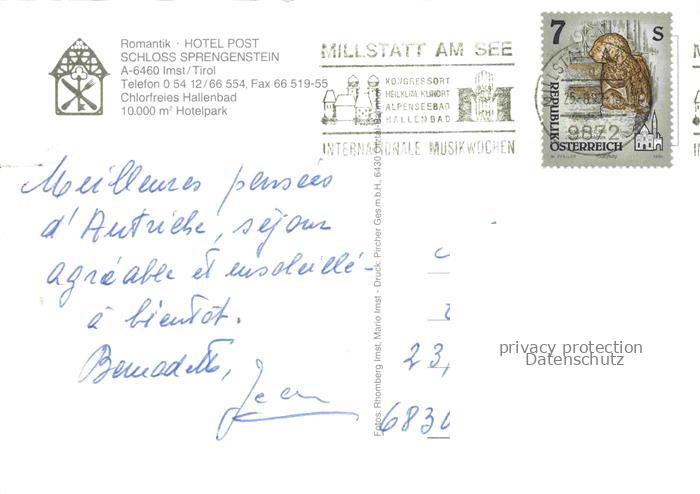 Romantik · HOTEL POST
SCHLOSS SPRENGENSTEIN
A-6460 Imst/Tirol
Telefon 0 54 12/66 554, Fax 66 519-55
Chlorfreies Hallenbad
10.000 m² Hotelpark
MILLSTATT AM SEE
KONGRESSORT
HEILKLIM. KURORT
ALPENSEEBAD
HALLENBAD
INTERNATIONALE MUSIKWOCHEN
9872
7 S
REPUBLIK
ÖSTERREICH
Meilleures pensées
d'Autriche, séjour
agréable et ensoleillé-
à bientôt.
Bernadette,
Jean
Fotos: Rhomberg Imst, Mario Imst - Druck: Pircher Ges.m.b.H., 6430
23,
6830
privacy protection
Datenschutz